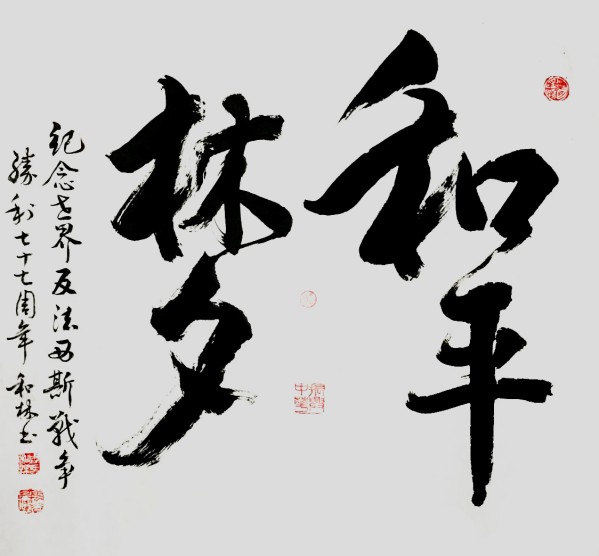 和平
梦
紀念世界反法西斯戰争
勝利七十七周年 和林书